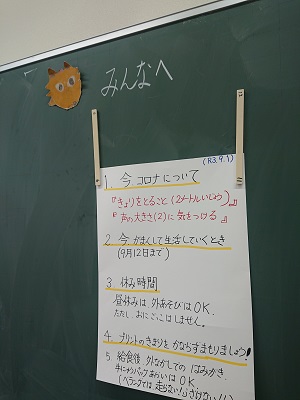 「みんなへ
(R3.9.1)
1. 今、コロナについて
『きょりをとること(2メートルいじょう)』
『声の大きさ(2)に気をつける』
2 今 がまんして生活していくとき
(9月12日まで)
3 休み時間
昼休みは 外あそびはOK.
ただし、おにごっこはしません。
4. プリントのきまりを かならずまもりましょう!
5 給食後 外ながしでの はみがき、
パックあらいはOK.
(ベランダでは 走らない!ふざけない!!)